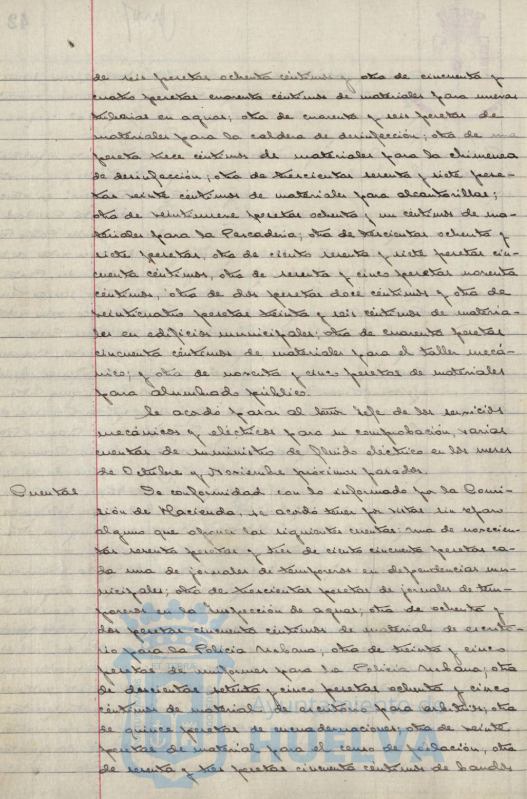 de seis pesetas ochenta céntimos y otra de cincuenta y
cuatro pesetas cuarenta céntimos de materiales para nuevas
tuberias en aguas; otra de cuarenta y seis pesetas de
materiales para la caldera de desinfección; otra de una
peseta trece céntimos de materiales para la chimenea
de desinfección; otra de trescientas sesenta y siete pese-
tas veinte céntimos de materiales para alcantarillas;
otra de veintinueve pesetas ochenta y un céntimos de ma-
teriales para la Pescaderia; otra de trescientas ochenta y
siete pesetas, otra de ciento sesenta y siete pesetas cin-
cuenta céntimos, otra de sesenta y cinco pesetas noventa
céntimos, otra de dos pesetas doce céntimos y otra de
veinticuatro pesetas treinta y seis céntimos de materia-
les en edificios municipales; otra de cuarenta pesetas
cincuenta céntimos de materiales para el taller mecá-
nico; y otra de noventa y cinco pesetas de materiales
para alumbrado público.
Se acordó pasar al Señor Jefe de los servicios
mecánicos y eléctricos para su comprobación, varias
cuentas de suministro de fluido eléctrico en los meses
de Octubre y Noviembre próximos pasados.
Cuentas De conformidad con lo informado por la Comi-
sión de Hacienda, se acordó tener por vistas sin reparo
alguno que oponer las siguientes cuentas: una de novecien-
tas sesenta pesetas y tres de ciento cincuenta pesetas ca-
da una de jornales de temporeros en dependencias mu-
nicipales; otra de trescientas pesetas de jornales de tem-
poreros en la inspección de aguas; otra de ochenta y
dos pesetas cincuenta céntimos de material de escrito-
rio para la Policia Urbana, otra de treinta y cinco
pesetas de uniformes para la Policia Urbana; otra
de doscientas setenta y cinco pesetas ochenta y cinco
céntimos de material de escritorio para arbitrios; otra
de quince pesetas de encuadernaciones; otra de veinte
pesetas de material para el censo de población, otra
de sesenta y tres pesetas cincuenta céntimos de bandos
Ayuntamiento
HUELVA